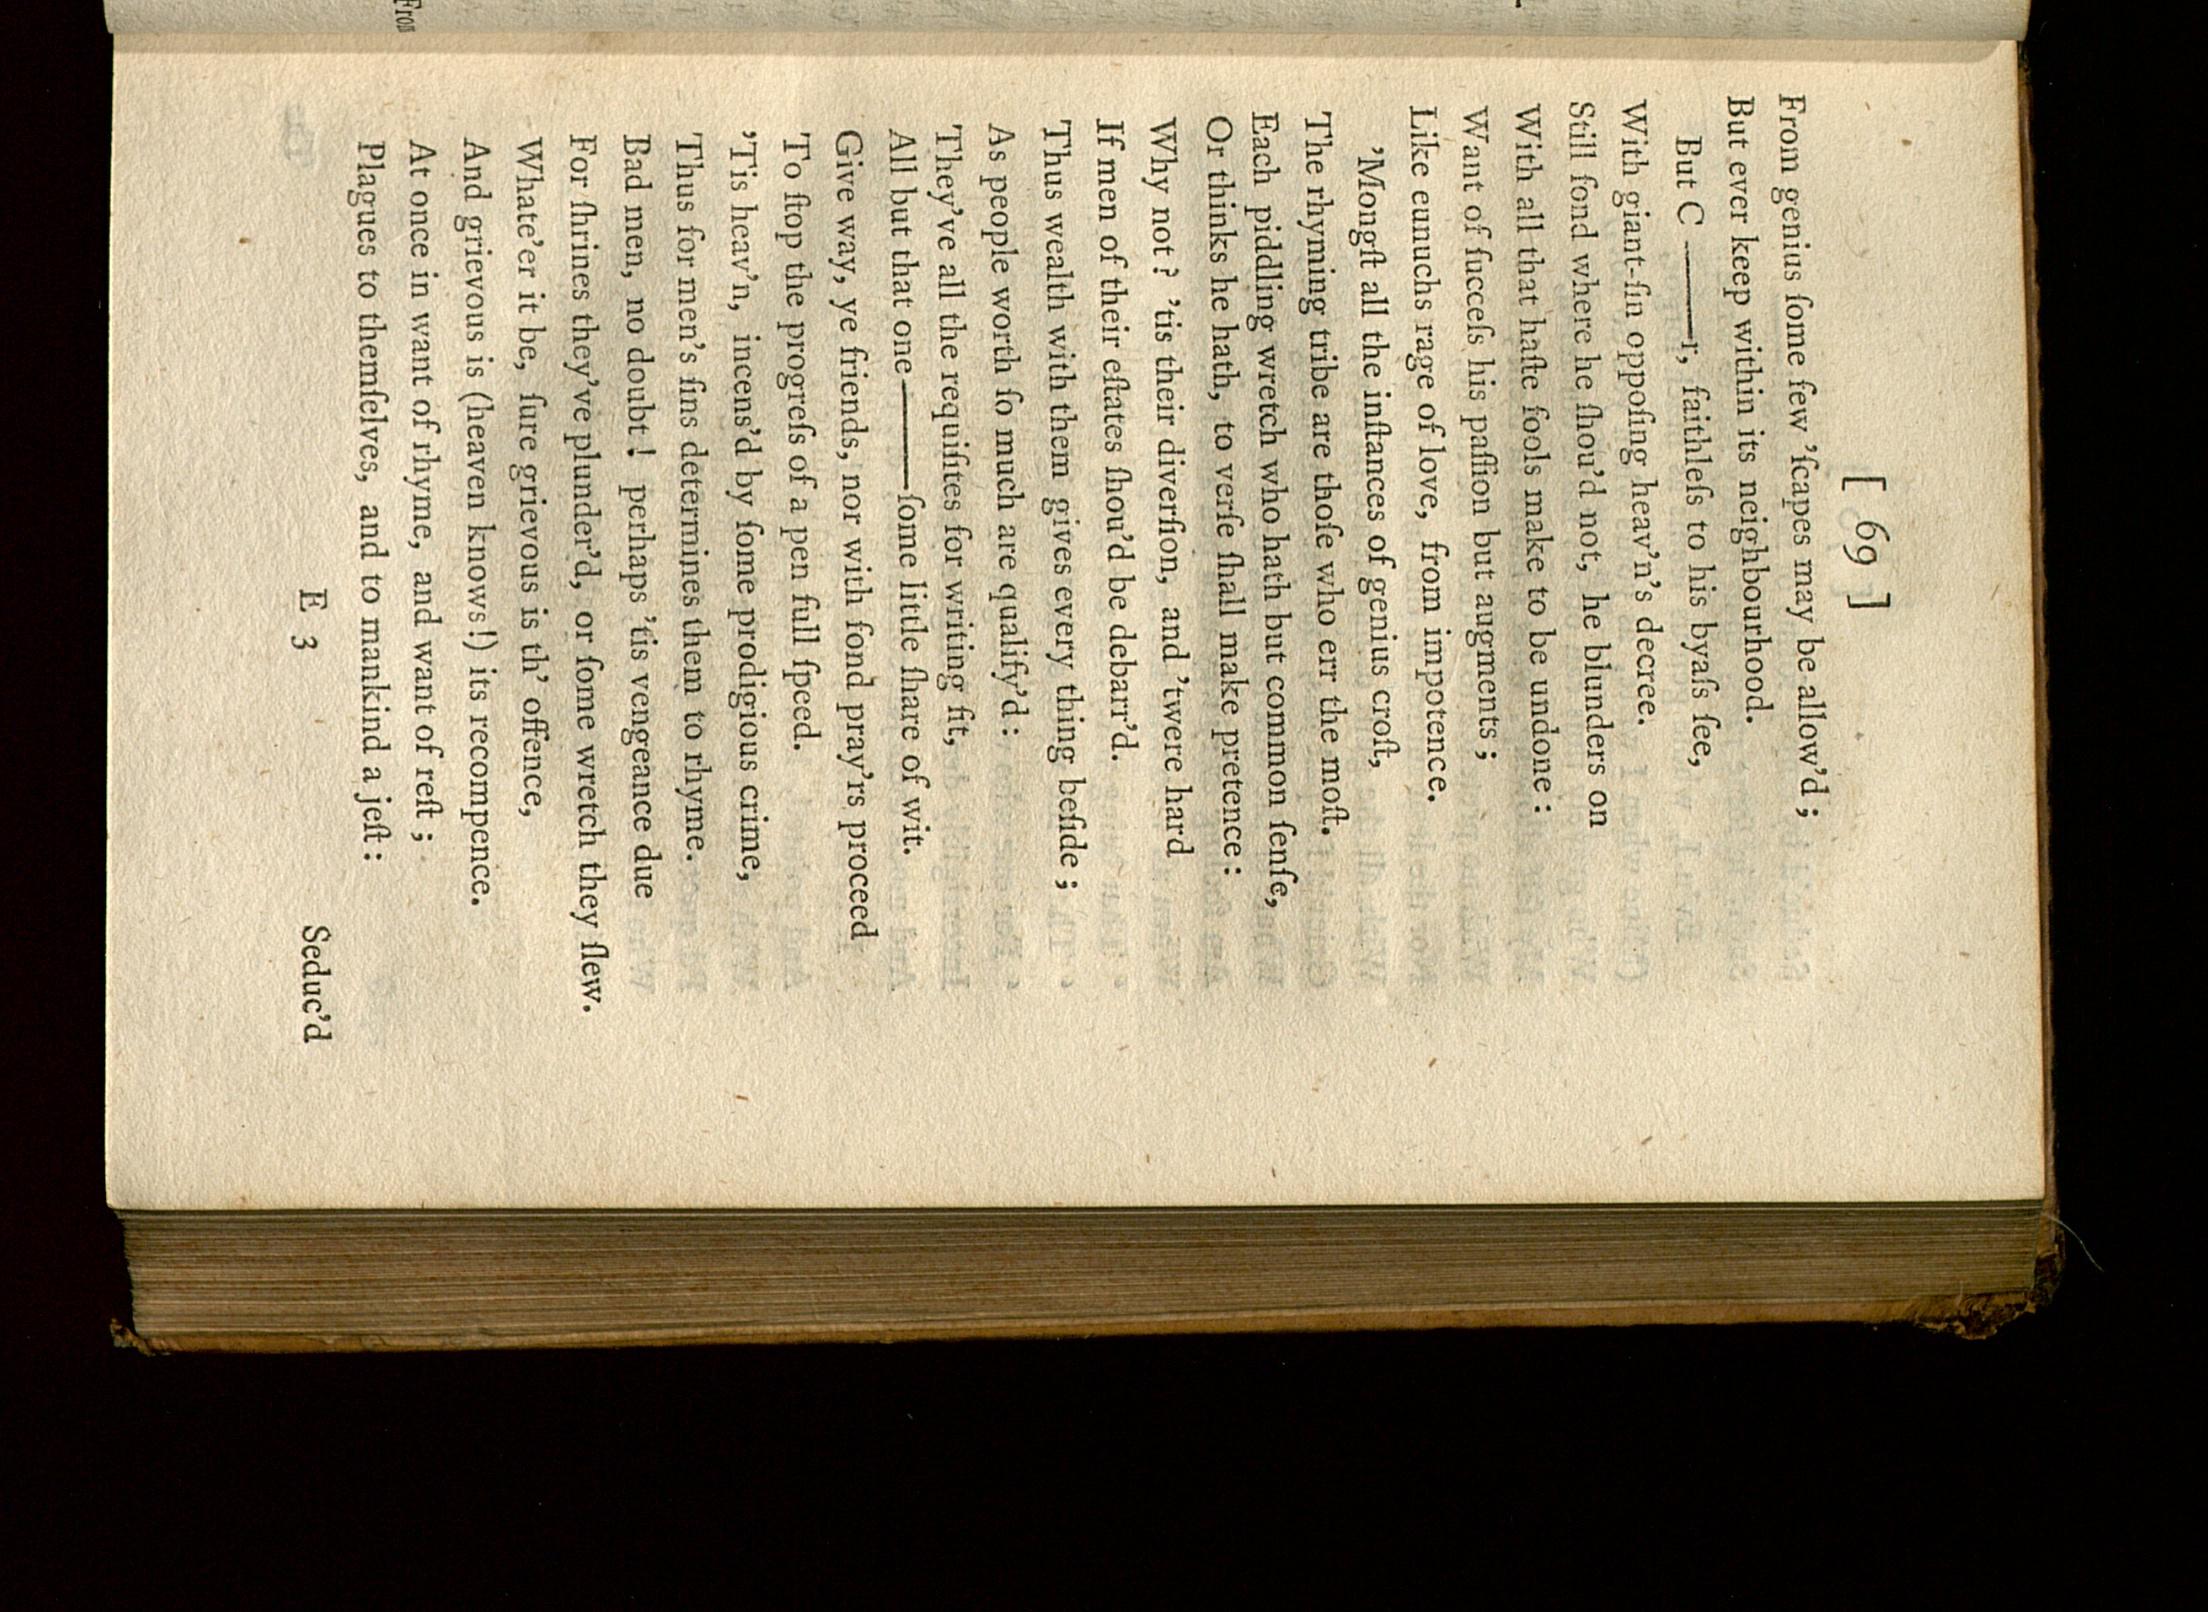 [ 69 ]
From genius ſome few 'ſcapes may be allow'd ;
But ever keep within its neighbourhood.
But C ———r, faithleſs to his byaſs ſee,
With giant-ſin oppoſing heav'n's decree.
Still fond where he ſhou'd not, he blunders on
With all that haſte fools make to be undone :
Want of ſucceſs his paſſion but augments ;
Like eunuchs rage of love, from impotence.
'Mongſt all the inſtances of genius croſt,
The rhyming tribe are thoſe who err the moſt.
Each piddling wretch who hath but common ſenſe,
Or thinks he hath, to verſe ſhall make pretence :
Why not ? 'tis their diverſion, and 'twere hard
If men of their eſtates ſhou'd be debarr'd.
Thus wealth with them gives every thing beſide ;
As people worth ſo much are qualify'd :
They've all the requiſites for writing fit,
All but that one———ſome little ſhare of wit.
Give way, ye friends, nor with fond pray'rs proceed
To ſtop the progreſs of a pen full ſpeed.
'Tis heav'n, incens'd by ſome prodigious crime,
Thus for men's ſins determines them to rhyme.
Bad men, no doubt ! perhaps 'tis vengeance due
For ſhrines they've plunder'd, or ſome wretch they ſlew.
Whate'er it be, ſure grievous is th' offence,
And grievous is (heaven knows !) its recompence.
At once in want of rhyme, and want of reſt ;
Plagues to themſelves, and to mankind a jeſt :
E 3 Seduc'd
From